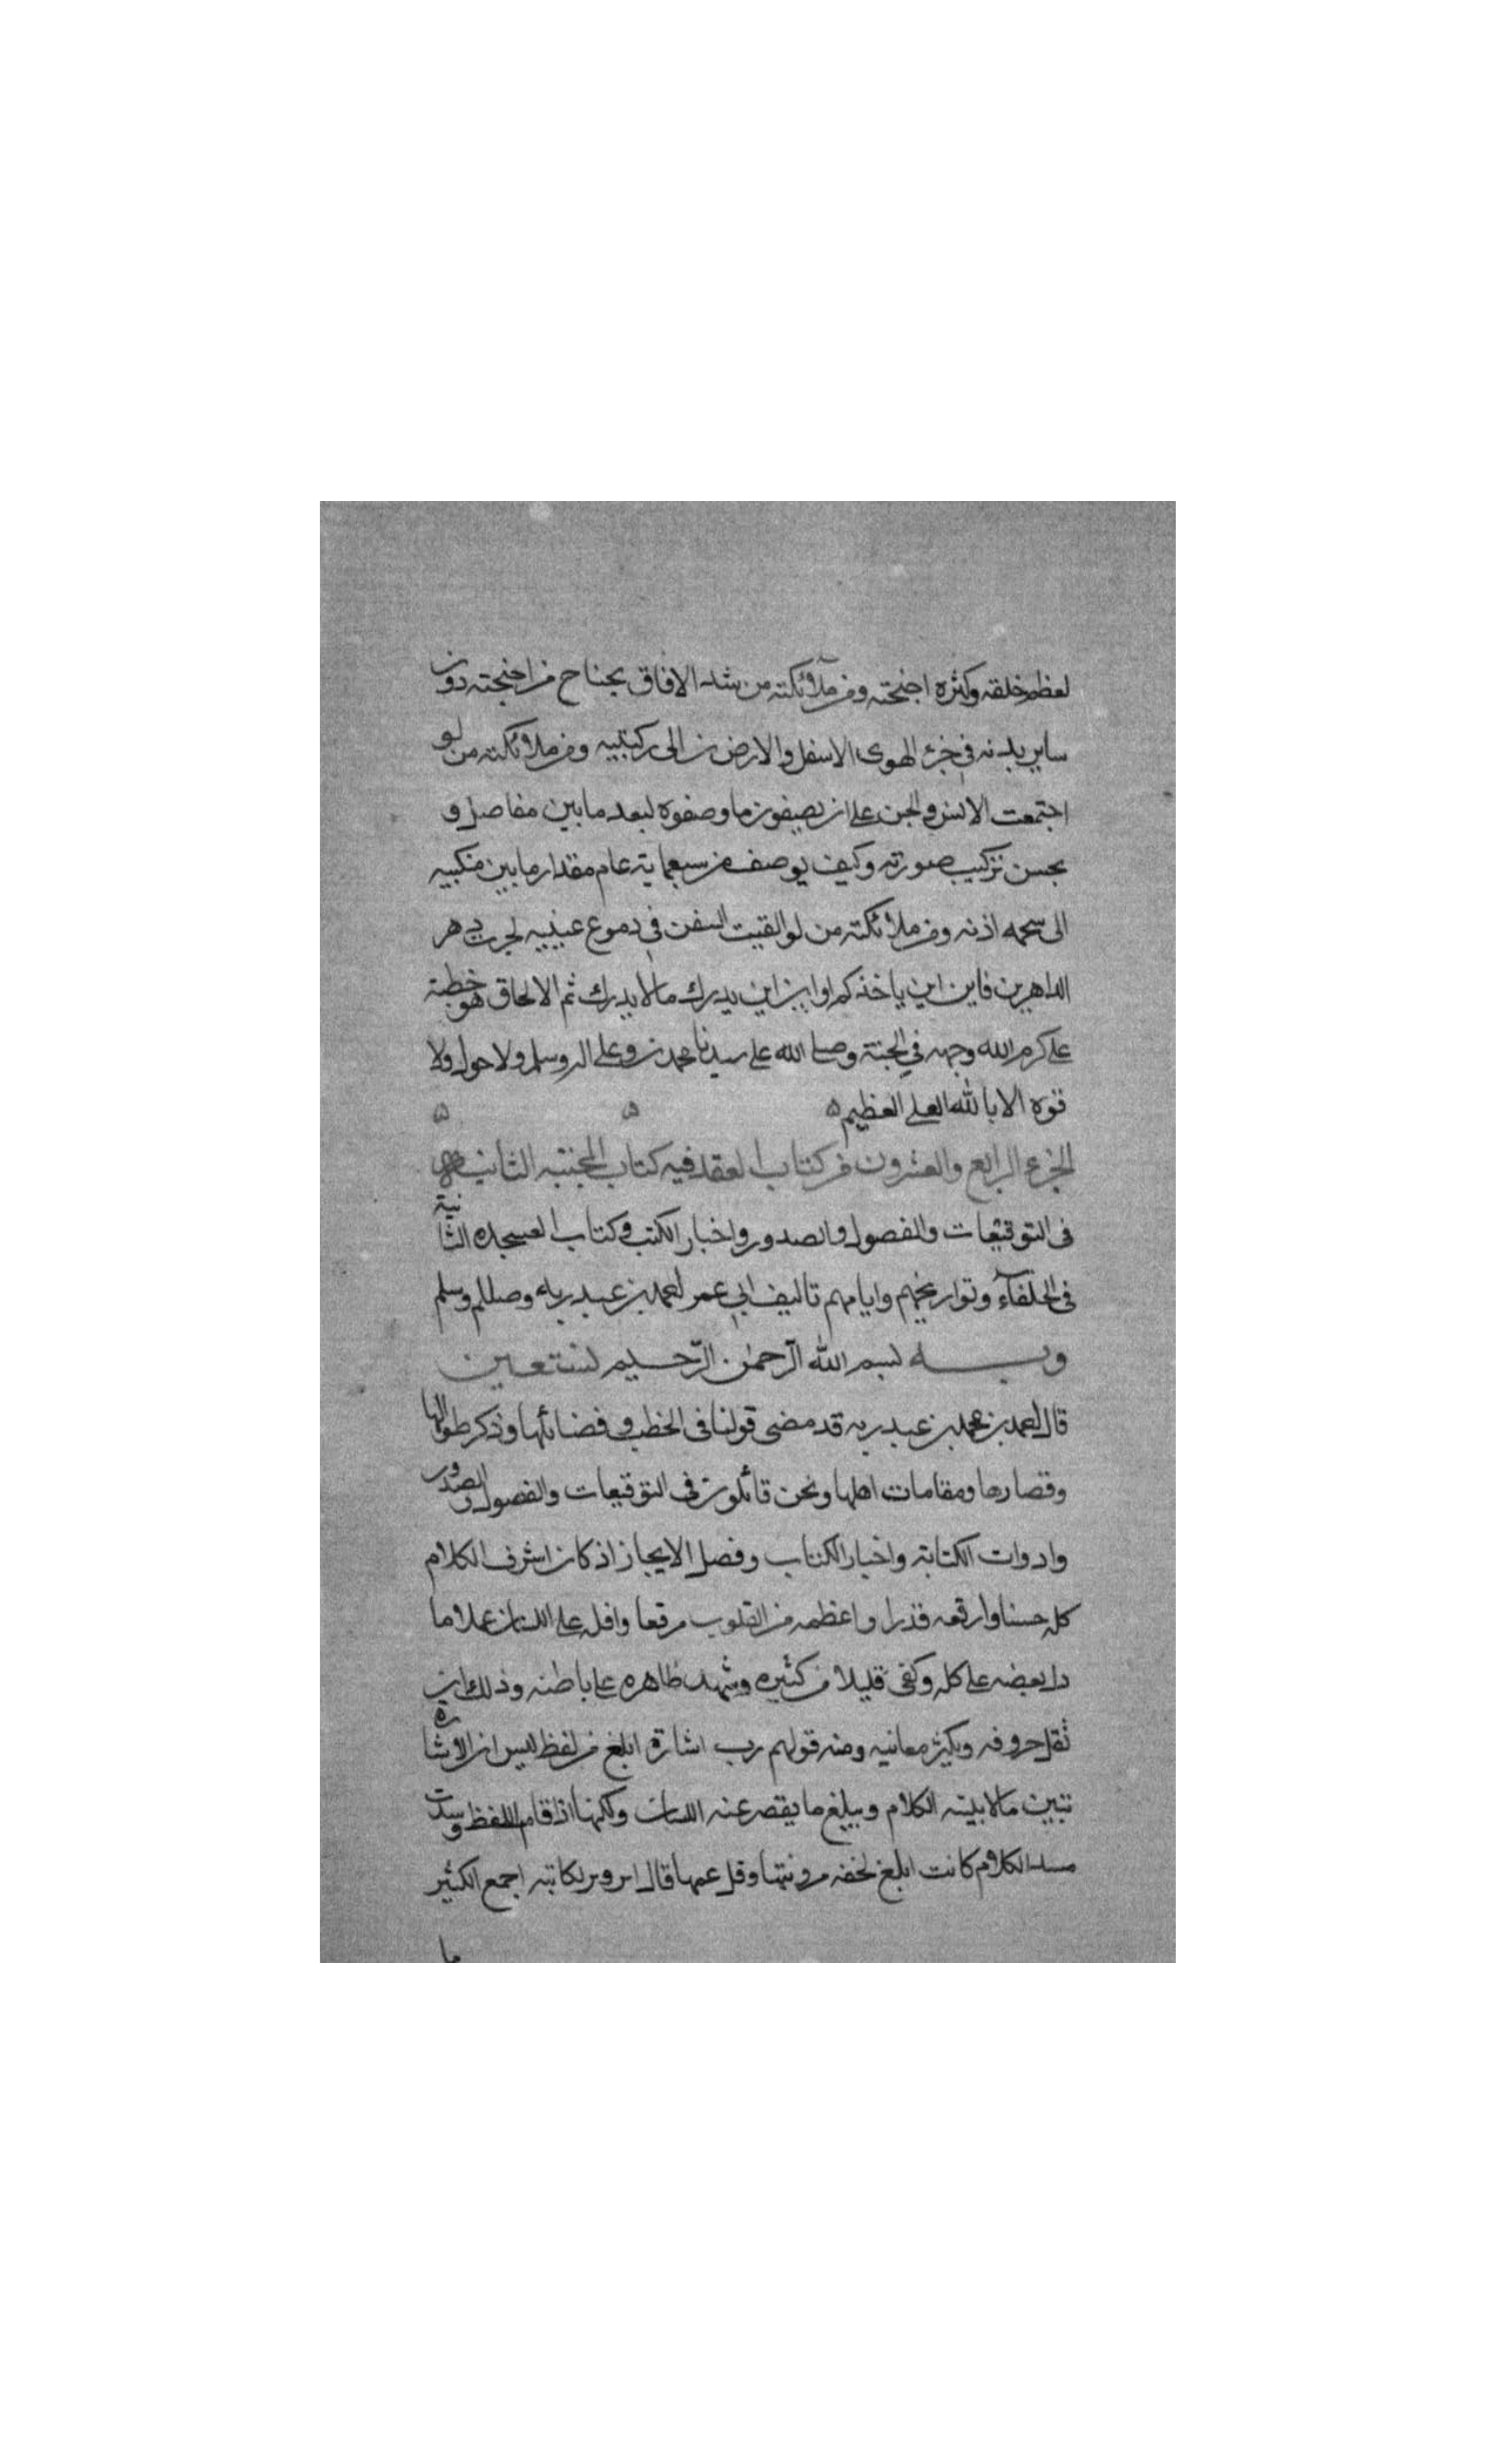 لعظم خلقه وكثره اجنحته ومن ملآئكته من يسد الافاق بجناح من اجنحته دون
ساير بدنه في خرء الهوى الاسفل والارض ن الى ركبتيه ومن ملائكته من لو
اجتمعت الانس والجن على ان يصفون ما وصفوه لبعد ما بين مفاصل و
بحسن تركيب صورته وكيف يوصف من سبعماية عام مقدار ما بين منكبيه
الى سحمه اذنه ومن ملائكته من لو القيت السفن في دموع عينيه لجرت دهر
الداهرين فاين اين ياخذ كم او اين اين يدرك ما لا يدرك ثم الالحاق هو خطبة
على كرم الله وجهه في الجنة وصلى الله على سيدنا محمد ن وعلى اله وسلم ولا حول ولا
قوه الا بالله العلى العظيم ه ه ه
الجزء الرابع والعشرون من كتاب العقد فيه كتاب المجنبه الثانيه
فى التوقيعات والفصول والصدور واخبار الكتب وكتاب العسجده الثانية
فى الخلفآء وتواريخهم وايامهم تاليف ابي عمر احمد بن عبد ربه وصللم وسلم
وبه بسم الله الرحمن الرحيم نستعين
قال احمد بن محمد بن عبد ربه قد مضى قولنا فى الخطب و فضائلها وذكر طوالها
وقصارها ومقامات اهلها ونحن قائلون فى التوقيعات والفصول والصدور
وادوات الكتابة واخبار الكتاب وفصل الايجاز اذ كان اشرف الكلام
كله حسنا وارفعه قدرا واعظمه من القلوب مرقعا واقله على اللسان عملا ما
دل بعضه على كله وكفى قليلا من كثيره وشهد ظاهره على باطنه وذلك ان
ثقل حروفه ويكثر معانيه ومنه قولهم رب اشارة ابلغ من لفظ ليس ان الاشارة
تبين ما لا يبينه الكلام ويبلغ ما يقصر عنه اللسان ولكنها اذا قام اللفظ وسدت
مسد الكلام كانت ابلغ لخفه مرونتها وقل عمها قال ابرويز لكاتبه اجمع الكثير
ما